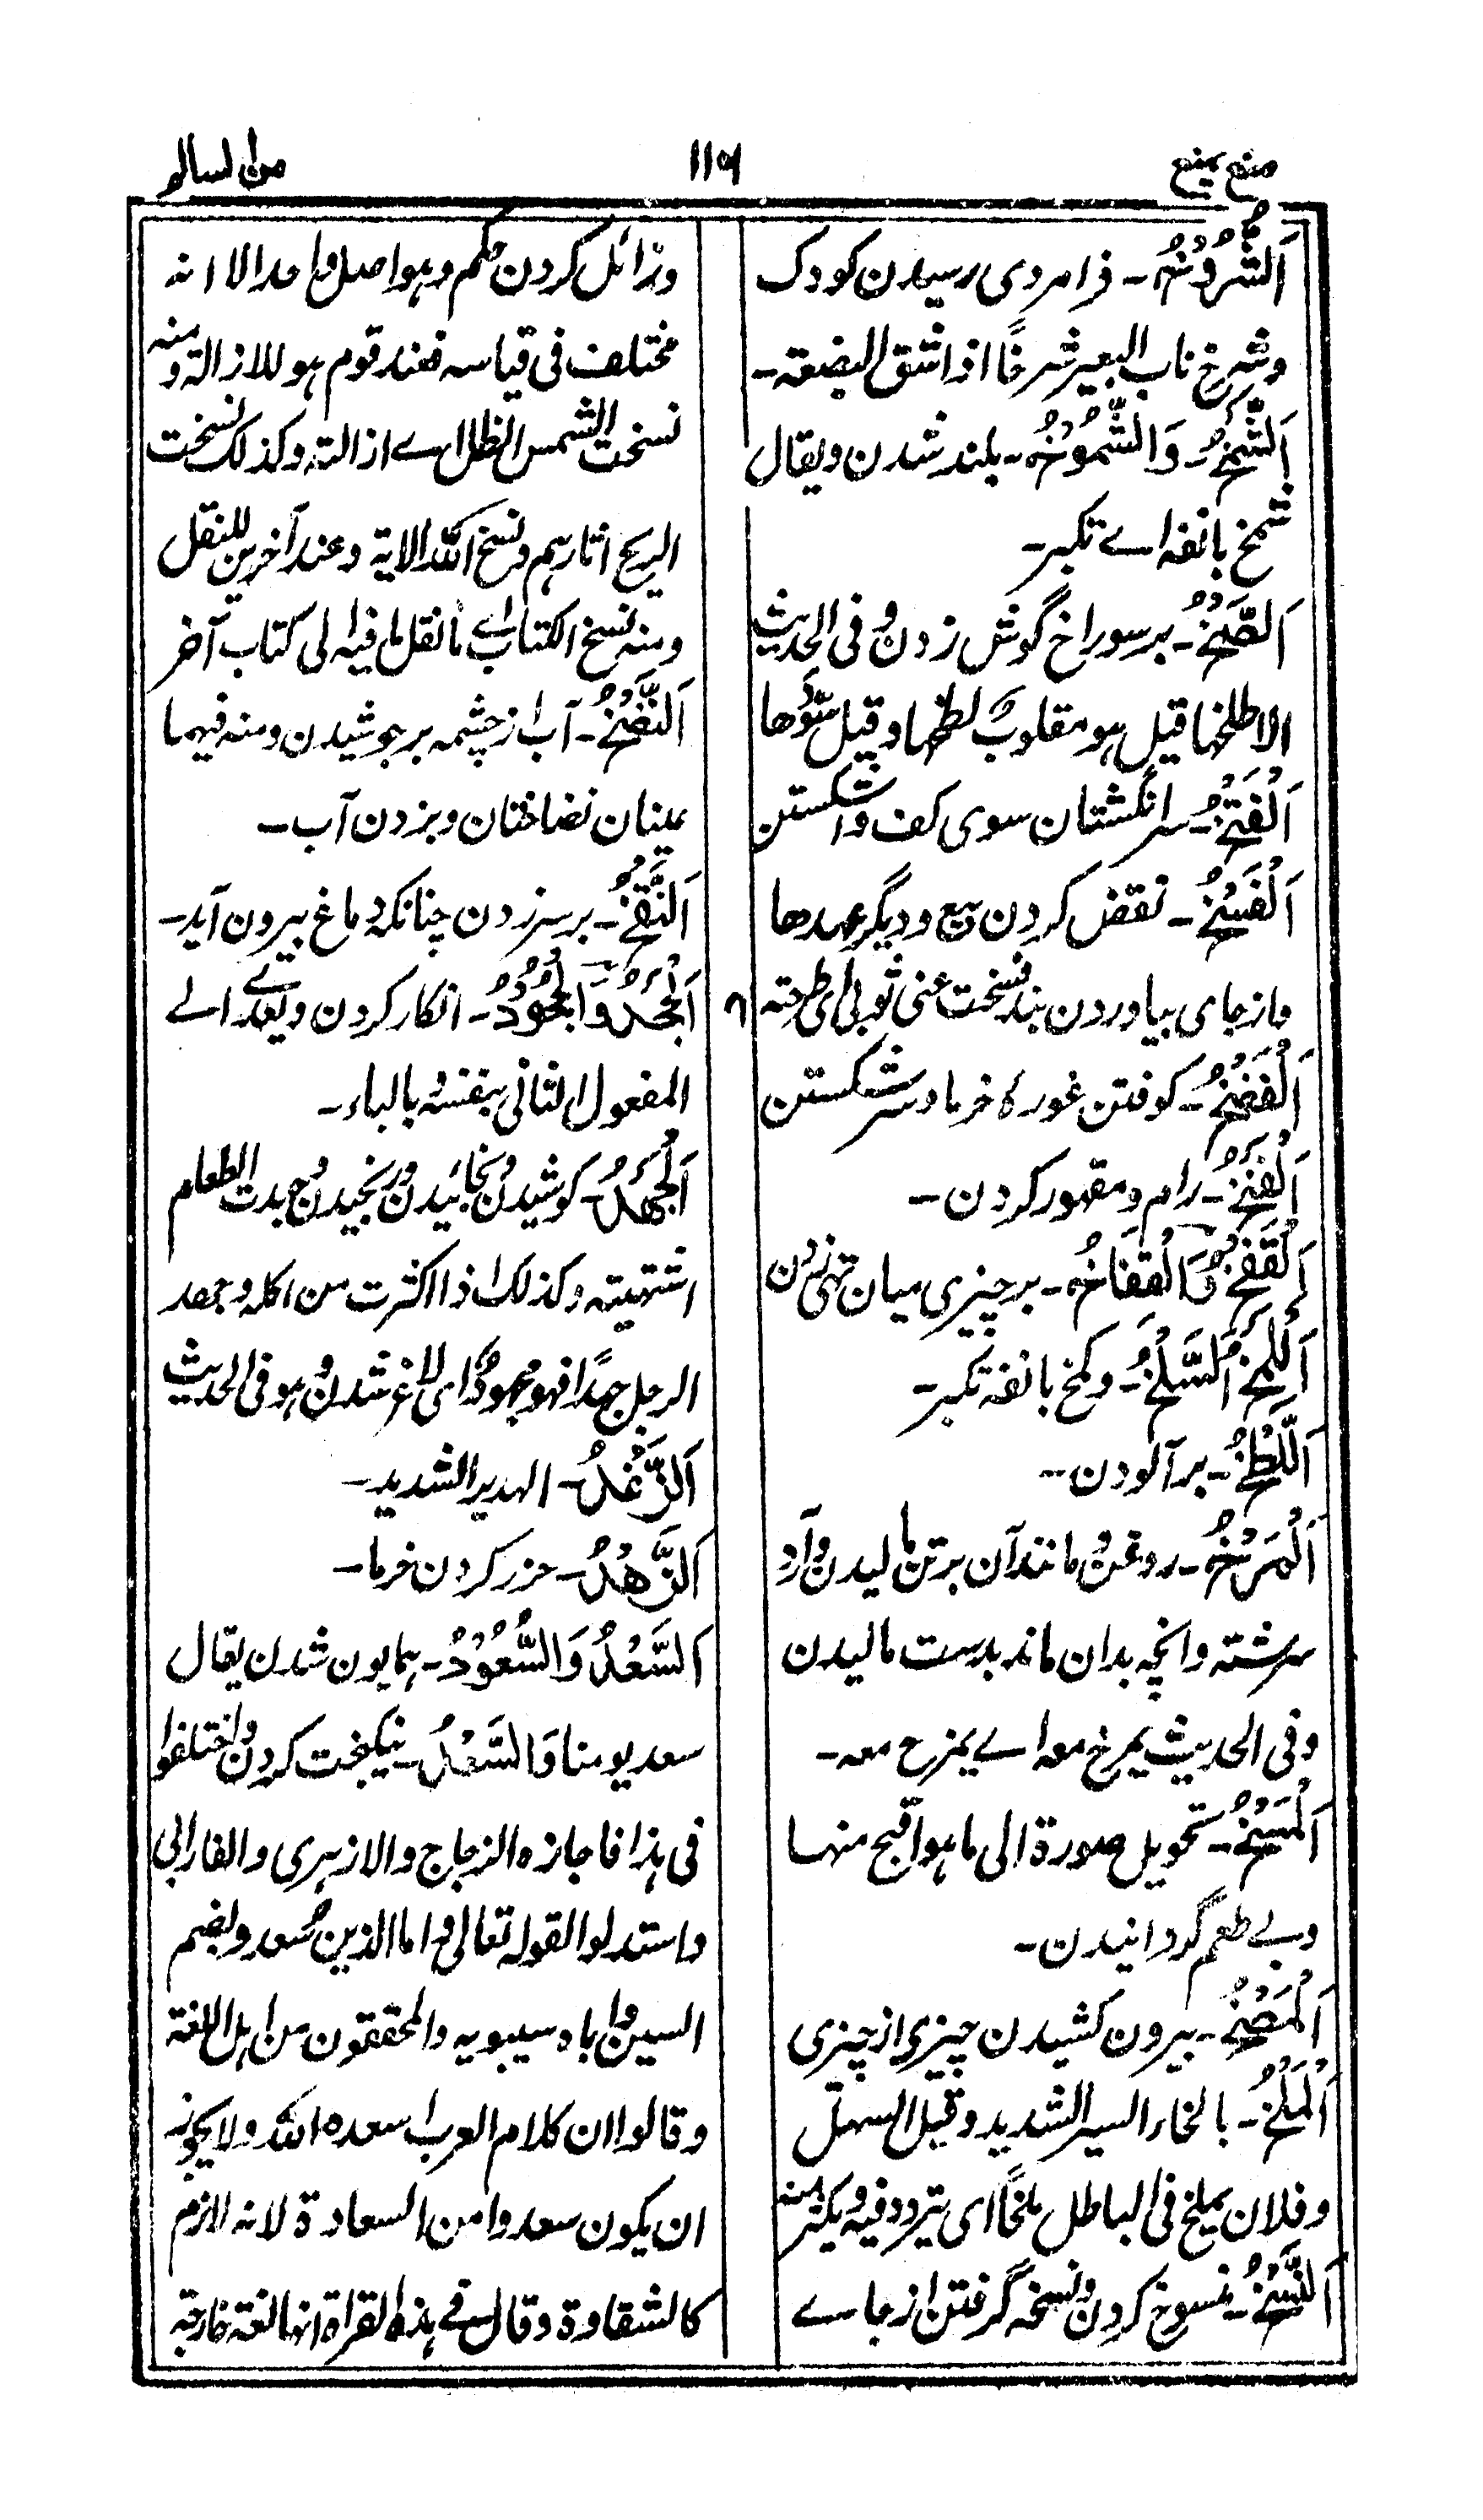 منع یمنع
۱۱۹
من السالم
اَلشُّرُوْخُ۔ فرا مردی رسیدن کودک
وشرخ ناب البعیر شرخًا اذا شق البضعة۔
اَلشَّمْخُ وَالشُّمُوْخُ۔ بلند شدن ویقال
شمخ بانفه اے تکبر۔
اَلصَّخُّ۔ بر سوراخ گوش زدن وفی الحدیث
الاطلخها قیل هو مقلوب لطخها وقیل سَوَّدَها
اَلْفَتْخُ۔ سر انگشتان سوی کف واشکستن
اَلْفَسْخُ۔ نقض کردن بیع و دیگر عهدها
واز جای بیاوردن بند فسخت عنی ثوبی ای طرحته
اَلْفَضْخُ۔ کوفتن غورهٔ خرما و سر شکستن
اَلْفَنْخُ۔ رام و مقهور کردن۔
اَلْقَفْخُ وَالْقِفَاخُ۔ بر چیزی میان تهی زدن
اَلْكَمْخُ اَلسَّلْخُ۔ وکمخ بانفه تکبر۔
اَللَّطْخُ۔ بر آلودن۔
اَلْمَرْخُ۔ روغن و مانند آن بر تن مالیدن و آرد
سرشته وانچه بدان ماند بدست مالیدن
وفی الحدیث یمرخ معه اے یمزح معه۔
اَلْمَسْخُ۔ تحویل صورة الی ما هو اقبح منها
وبے طعم گردانیدن۔
اَلْمَصْخُ۔ بیرون کشیدن چیزی از چیزی
اَلْمَلْخُ۔ بالخاء السیر الشدید وقیل السهل
وفلان یملخ فی الباطل ملخًا ای یتردد فیه ویکثر منه
اَلنَّسْخُ۔ منسوخ کردن ونسخه گرفتن از جاے
وزائل کردن حکم وهو اصل واحد الا انه
مختلف فی قیاسه فعند قوم هو للازالة ومنه
نسخت الشمس الظل اے ازالته وکذلک نسخت
الریح اثارهم ونسخ الله الایة وعند آخرین للنقل
ومنه نسخ الکتاب اے مانقل مافیه الی کتاب آخر
اَلنَّضْخُ۔ آب از چشمه برجوشیدن ومنه فیهما
عینان نضاختان وبزدن آب۔
اَلنَّقْخُ۔ بر سر زدن چنانکه دماغ بیرون آید۔
د
اَلْجَحْدُ وَالْجُحُوْدُ۔ انکار کردن ویعدے الے
المفعول الثانی بنفسه وبالباء۔
اَلْجَهْدُ۔ کوشیدن ورنجانیدن ورنجیدن وجهدت الطعام
اشتهیته وکذلک اذا اکثرت من اکله وجهد
الرجل جهدًا فهو مجهود ای لاغر شدن وهو فی الحدیث
اَلزَّغْدُ۔ الهدیر الشدید۔
اَلزَّهْدُ۔ حزر کردن خرما۔
اَلسَّعْدُ وَالسُّعُوْدُ۔ همایون شدن یقال
سعد یومنا وَالسَّعْدُ۔ نیکبخت کردن واختلفوا
فی هذا فاجازه الزجاج والازهری والفارابی
واستدلوا لقوله تعالی واما الذین سُعدوا بضم
السین واباه سیبویه والمحققون من اهل اللغة
وقالوا ان کلام العرب اسعده الله ولا یجوز
ان یکون سعدوا من السعادة لانه لازم
کالشقاوة وقال فی هذه القراة انها لغة خارجة